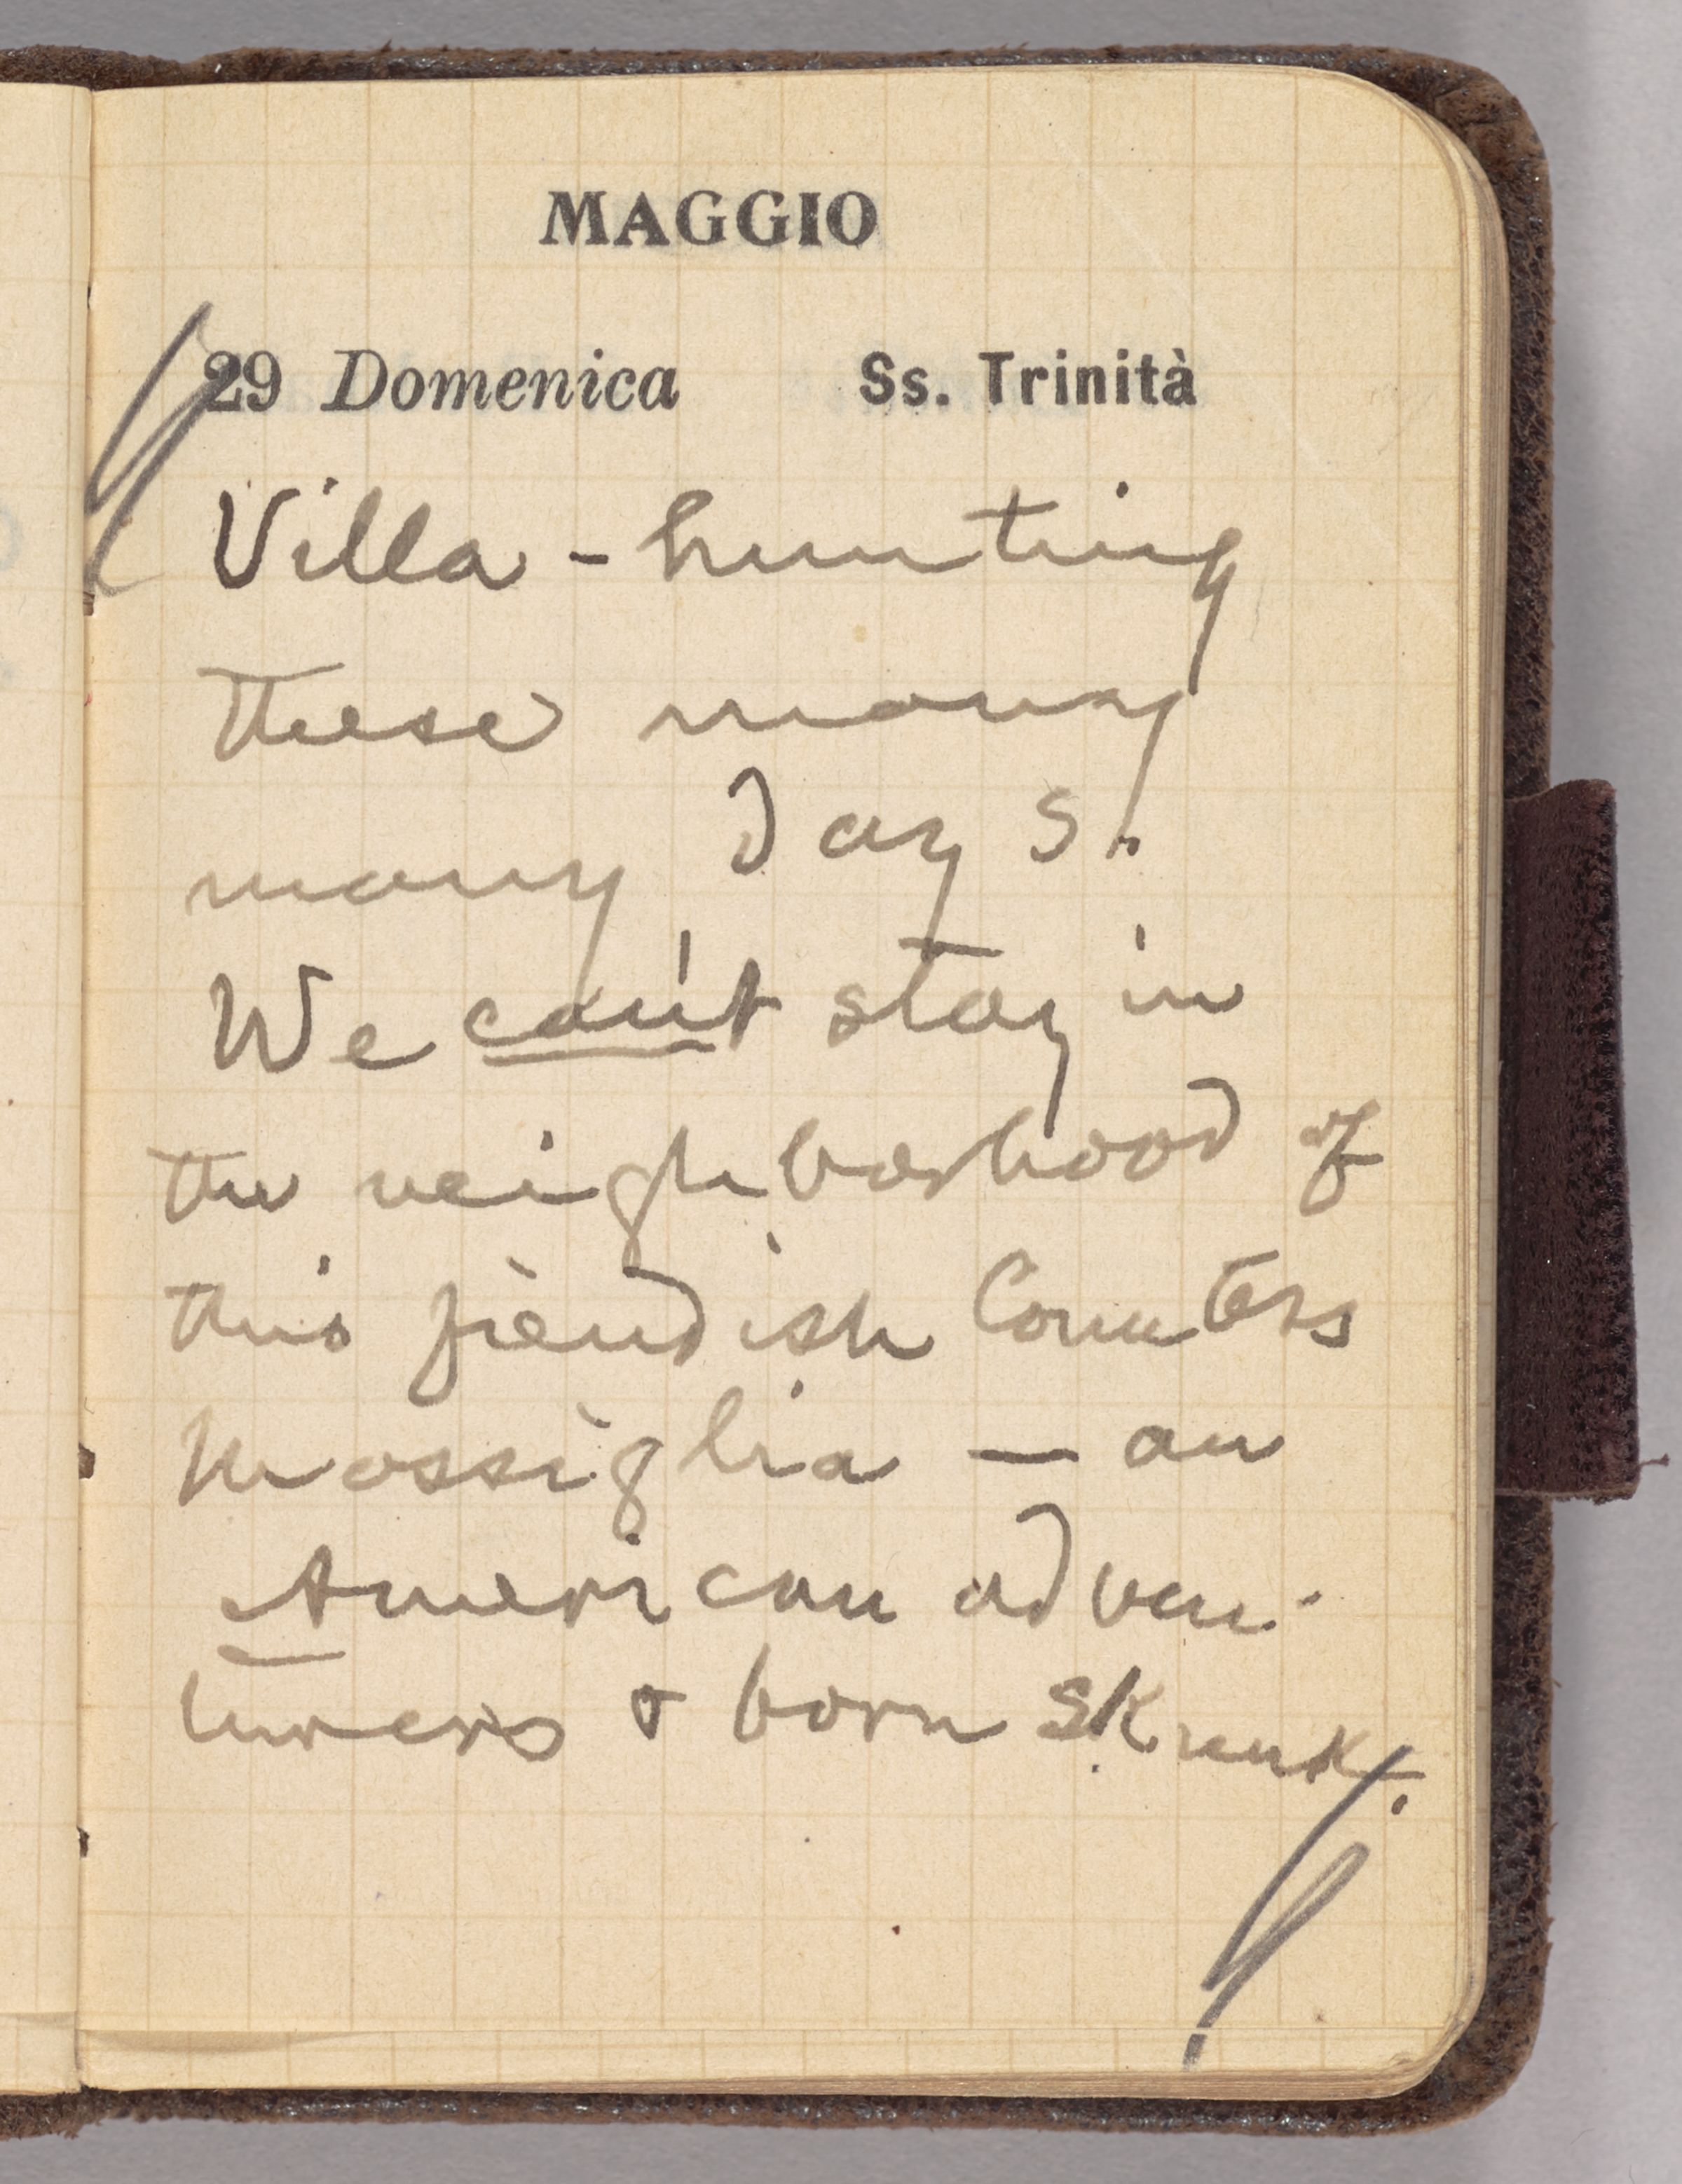 MAGGIO
29 Domenica Ss. Trinità
Villa - hunting
these many
many days.
We can't stay in
the neighborhood of
this fiendish Countess
Massiglia — an
American adven-
turess & born skunk.